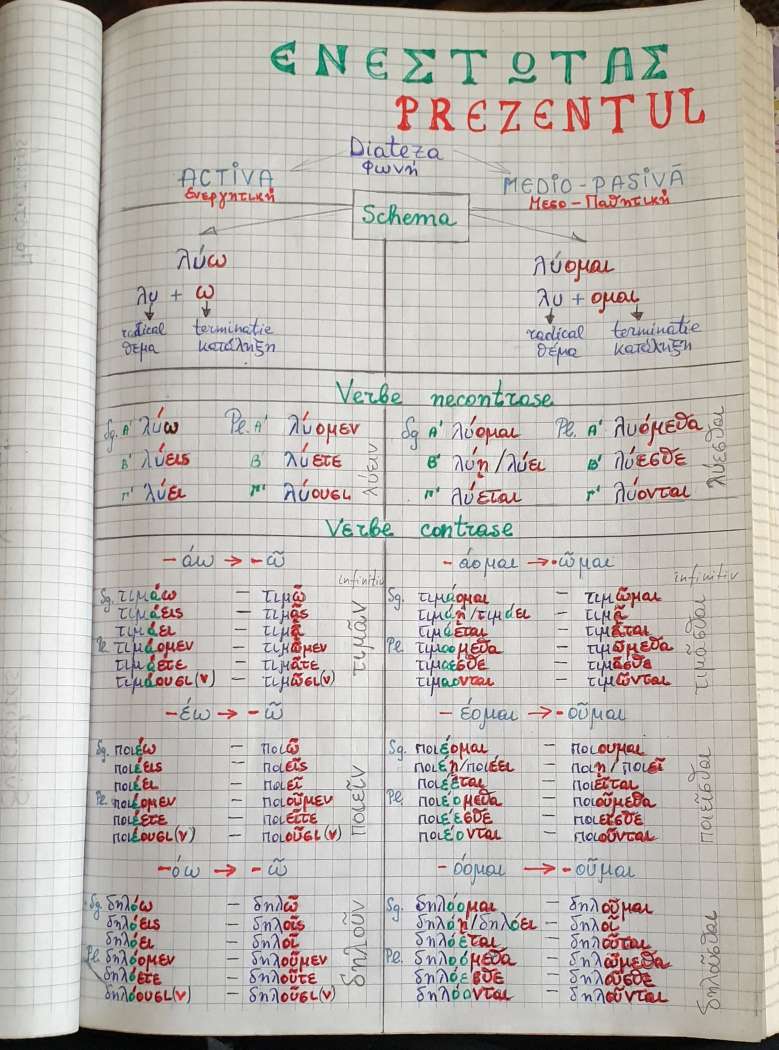 ΕΝΕΣΤΩΤΑΣ
PREZENTUL
Diateza
φωνή
ACTIVA
Ενεργητική
MEDIO-PASIVĂ
Μεσο-Παθητική
Schema
λύω
λυ + ω
radical terminatie
θέμα κατάληξη
λύομαι
λυ + ομαι
radical terminatie
θέμα κατάληξη
Verbe necontrase
Sg. Α' λύω Pl. Α' λύομεν
Β' λύεις Β' λύετε
Γ' λύει Γ' λύουσι
λύειν
Sg Α' λύομαι Pl. Α' λυόμεθα
Β' λύη/λύει Β' λύεσθε
Γ' λύεται Γ' λύονται
λύεσθαι
Verbe contrase
-άω → -ῶ
infinitiv
Sg. τιμάω - τιμῶ
τιμάεις - τιμᾶς
τιμάει - τιμᾶ
Pl τιμάομεν - τιμῶμεν
τιμάετε - τιμᾶτε
τιμάουσι(ν) - τιμῶσι(ν)
τιμᾶν
-άομαι → -ῶμαι
infinitiv
Sg. τιμάομαι - τιμῶμαι
τιμάη/τιμάει - τιμᾶ
τιμάεται - τιμᾶται
Pl. τιμαομεθα - τιμῶμεθα
τιμαεσθε - τιμᾶσθε
τιμαονται - τιμῶνται
τιμᾶσθαι
-έω → -ῶ
Sg. ποιέω - ποιῶ
ποιέεις - ποιεῖς
ποιέει - ποιεῖ
Pl ποιέομεν - ποιοῦμεν
ποιέετε - ποιεῖτε
ποιέουσι(ν) - ποιοῦσι(ν)
ποιεῖν
-έομαι → -οῦμαι
Sg. ποιέομαι - ποιουμαι
ποιέη/ποιέει - ποιη/ποιεῖ
ποιέεται - ποιεῖται
Pl. ποιέομεθα - ποιοῦμεθα
ποιέεσθε - ποιεῖσθε
ποιέονται - ποιοῦνται
ποιεῖσθαι
-όω → -ῶ
Sg. δηλόω - δηλῶ
δηλόεις - δηλοῖς
δηλόει - δηλοῖ
Pl. δηλόομεν - δηλοῦμεν
δηλόετε - δηλοῦτε
δηλόουσι(ν) - δηλοῦσι(ν)
δηλοῦν
-όομαι → -οῦμαι
Sg. δηλόομαι - δηλοῦμαι
δηλόη/δηλόει - δηλοῖ
δηλόεται - δηλοῦται
Pl. δηλοόμεθα - δηλῶμεθα
δηλόεσθε - δηλοῦσθε
δηλόονται - δηλοῦνται
δηλοῦσθαι